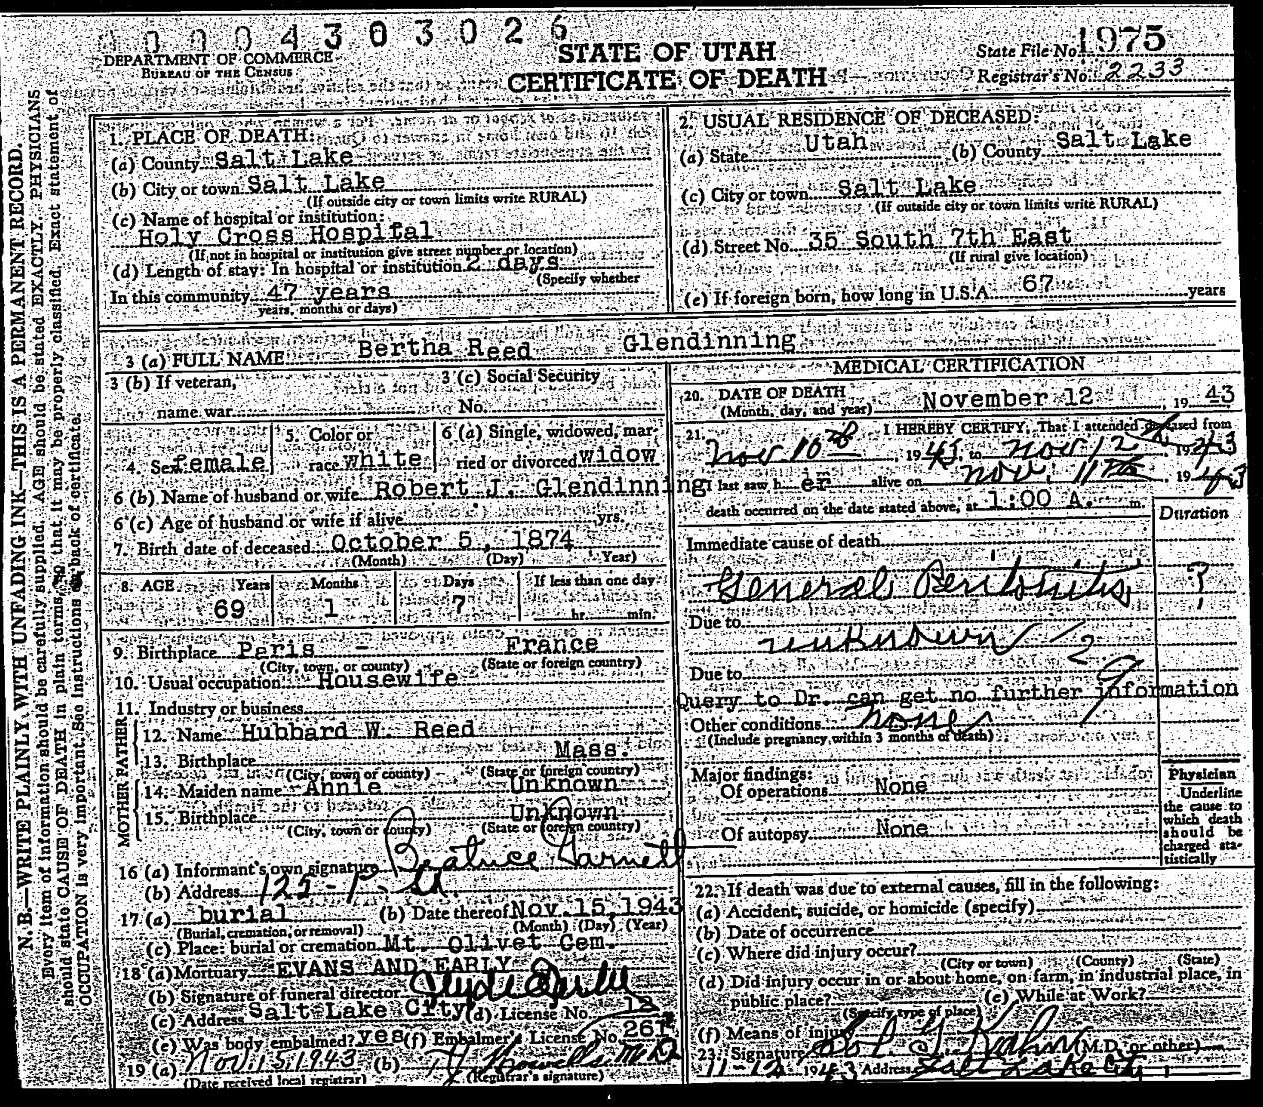 00004303026
DEPARTMENT OF COMMERCE
BUREAU OF THE CENSUS
STATE OF UTAH
CERTIFICATE OF DEATH
State File No. 1975
Registrar's No. 2233
N. B.—WRITE PLAINLY, WITH UNFADING INK—THIS IS A PERMANENT RECORD.
Every item of information should be carefully supplied. AGE should be stated EXACTLY. PHYSICIANS
should state CAUSE OF DEATH in plain terms, so that it may be properly classified. Exact statement of
OCCUPATION is very important. See instructions on back of certificate.
1. PLACE OF DEATH:
(a) County Salt Lake
(b) City or town Salt Lake
(If outside city or town limits write RURAL)
(c) Name of hospital or institution:
Holy Cross Hospital
(If not in hospital or institution give street number or location)
(d) Length of stay: In hospital or institution 2 days
(Specify whether
In this community 47 years
years, months or days)
2. USUAL RESIDENCE OF DECEASED:
(a) State Utah (b) County Salt Lake
(c) City or town Salt Lake
(If outside city or town limits write RURAL)
(d) Street No. 35 South 7th East
(If rural give location)
(e) If foreign born, how long in U.S.A. 67 years
3 (a) FULL NAME Bertha Reed Glendinning
3 (b) If veteran, name war
3 (c) Social Security No.
4. Sex female
5. Color or race white
6 (a) Single, widowed, married or divorced widow
6 (b) Name of husband or wife Robert J. Glendinning
6 (c) Age of husband or wife if alive yrs.
7. Birth date of deceased: October 5, 1874
(Month) (Day) (Year)
8. AGE Years Months Days If less than one day
69 1 7 hr. min.
9. Birthplace Paris - France
(City, town, or county) (State or foreign country)
10. Usual occupation Housewife
11. Industry or business
FATHER
12. Name Hubbard W. Reed
13. Birthplace Mass.
(City, town or county) (State or foreign country)
MOTHER
14. Maiden name Annie Unknown
15. Birthplace Unknown
(City, town or county) (State or foreign country)
16 (a) Informant's own signature Beatrice Garnett
(b) Address 125 - P. St.
17. (a) burial (b) Date thereof Nov. 15, 1943
(Burial, cremation, or removal) (Month) (Day) (Year)
(c) Place: burial or cremation Mt. Olivet Cem.
18 (a) Mortuary EVANS AND EARLY
(b) Signature of funeral director
(c) Address Salt Lake City (d) License No. 12
(e) Was body embalmed? yes (f) Embalmer's License No. 261
19 (a) Nov. 15, 1943 (b)
(Date received local registrar) (Registrar's signature)
MEDICAL CERTIFICATION
20. DATE OF DEATH
(Month, day, and year) November 12, 19 43
21. I HEREBY CERTIFY, That I attended deceased from
Nov 10th, 1943, to Nov 12, 1943
I last saw h er alive on Nov. 11th, 1943
death occurred on the date stated above, at 1:00 A. m.
Duration
Immediate cause of death
General Peritonitis ?
Due to
unknown
Due to
Query to Dr. can get no further information
Other conditions none
(Include pregnancy within 3 months of death)
Major findings:
Of operations None
Of autopsy None
Physician
Underline
the cause to
which death
should be
charged sta-
tistically
22. If death was due to external causes, fill in the following:
(a) Accident, suicide, or homicide (specify)
(b) Date of occurrence
(c) Where did injury occur?
(City or town) (County) (State)
(d) Did injury occur in or about home, on farm, in industrial place, in
public place? (e) While at Work?
(Specify type of place)
(f) Means of injury
23. Signature Sol G. Kahn (M.D. or other)
11-12 1943 Address Salt Lake City